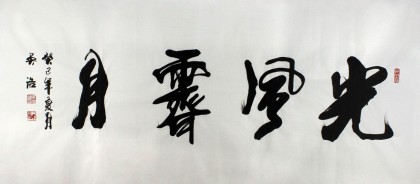 光風霽月
癸巳年夏月